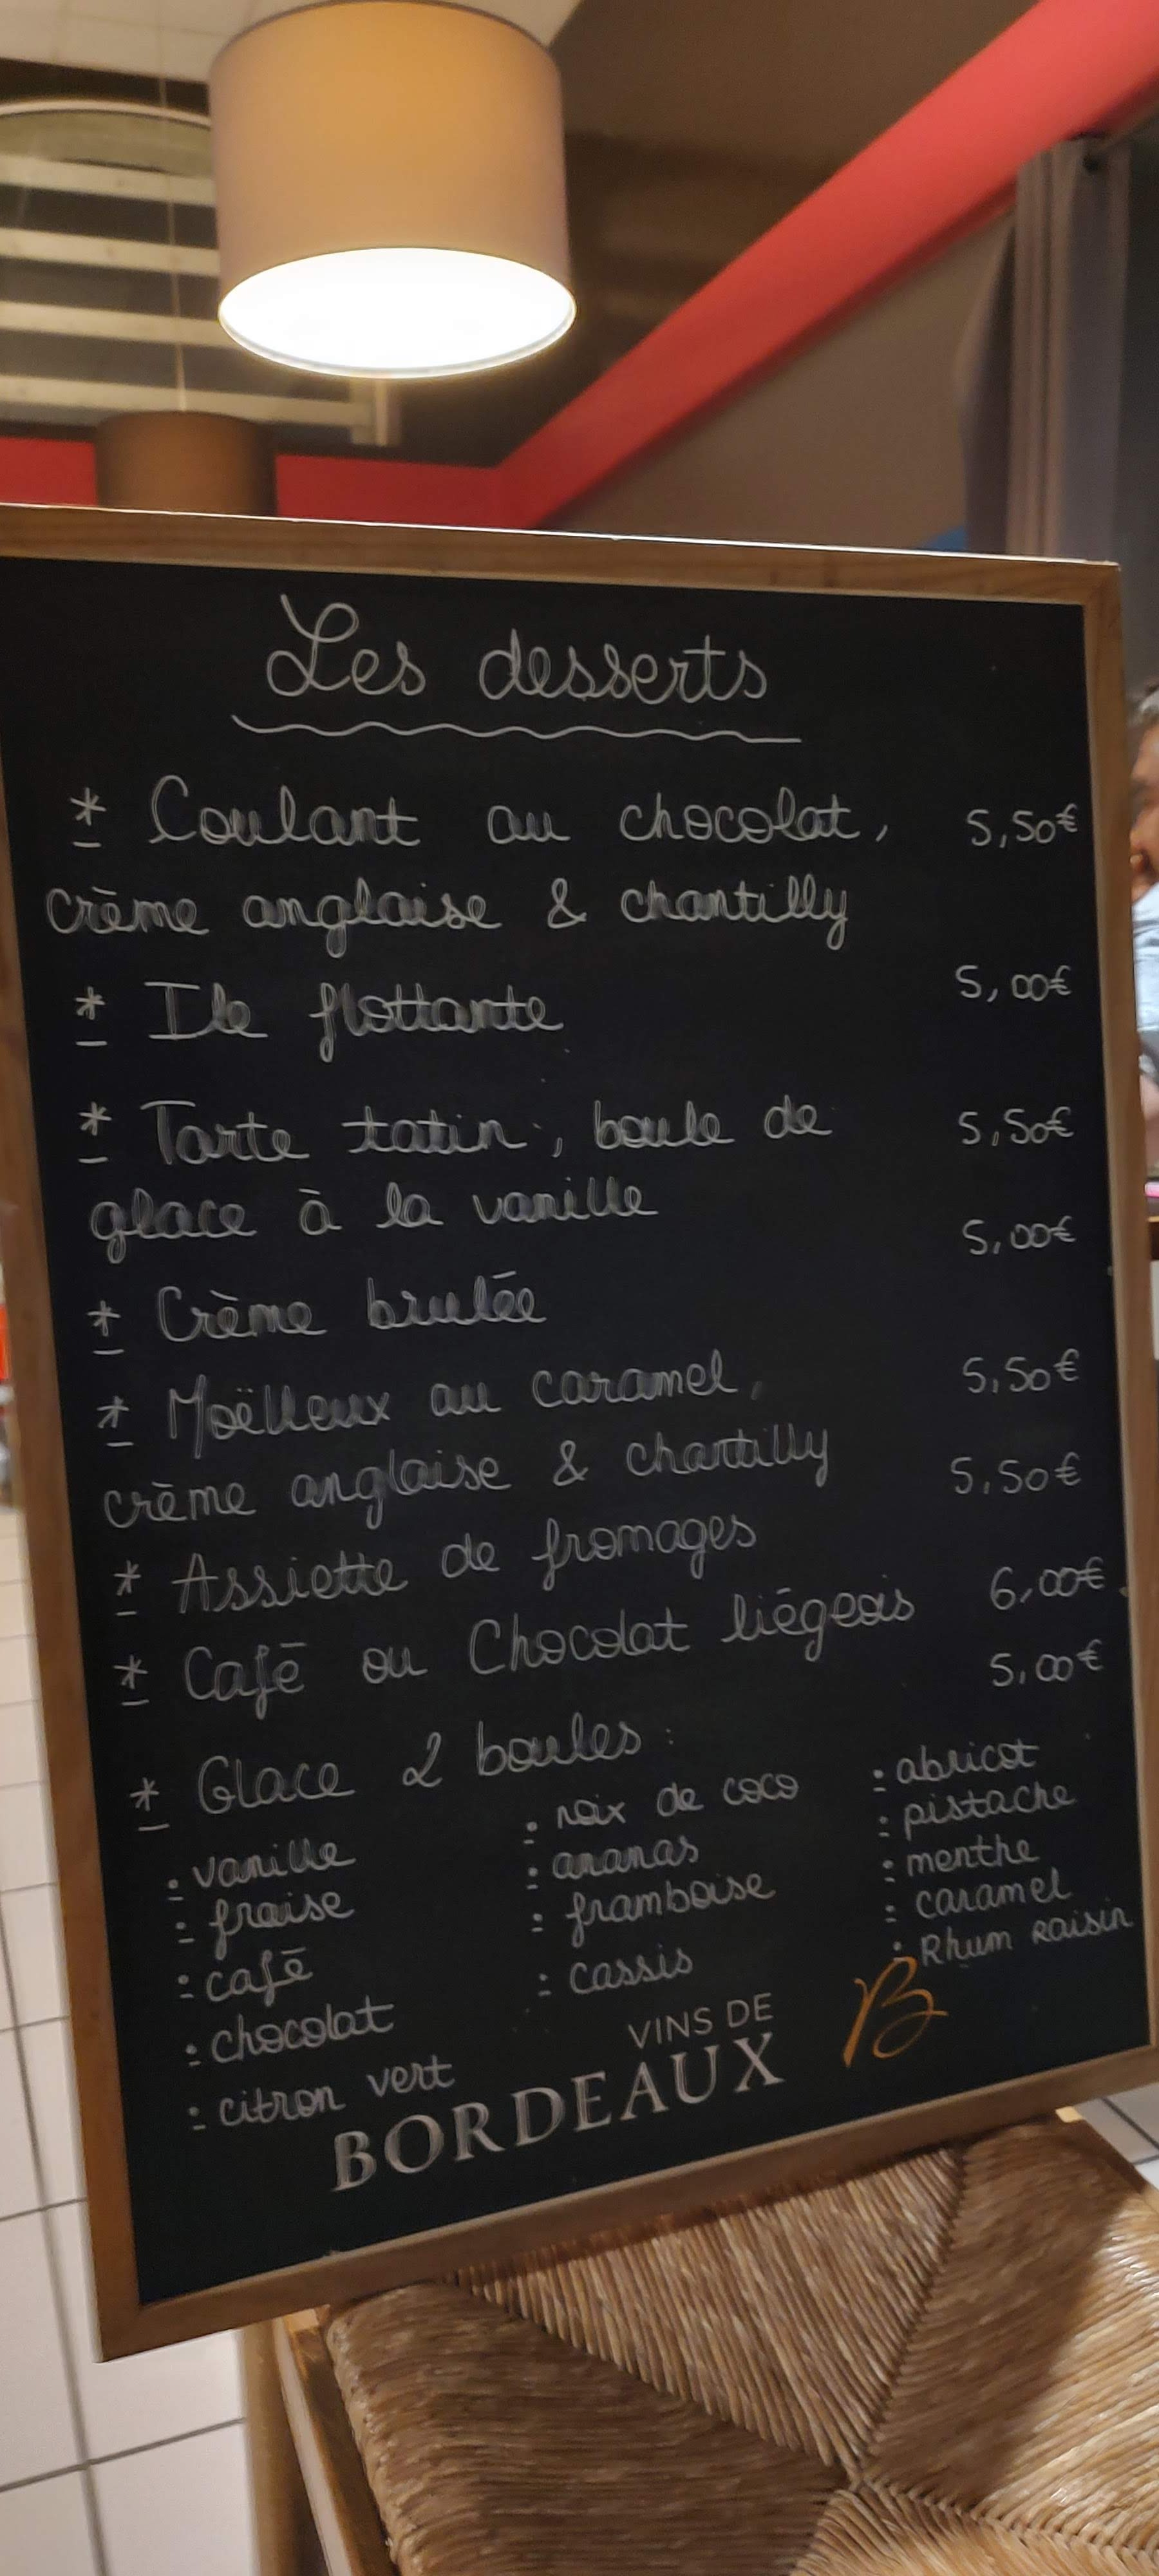 Les desserts
* Coulant au chocolat, 5,50€
crème anglaise & chantilly
* Ile flottante 5,00€
* Tarte tatin, boule de 5,50€
glace à la vanille
* Crème brulée 5,00€
* Moëlleux au caramel, 5,50€
crème anglaise & chantilly
* Assiette de fromages 5,50€
* Café ou Chocolat liégeois 6,00€
* Glace 2 boules: 5,00€
: vanille
: fraise
: café
: chocolat
: citron vert
: noix de coco
: ananas
: framboise
: cassis
: abricot
: pistache
: menthe
: caramel
: Rhum Raisin
VINS DE
BORDEAUX
B